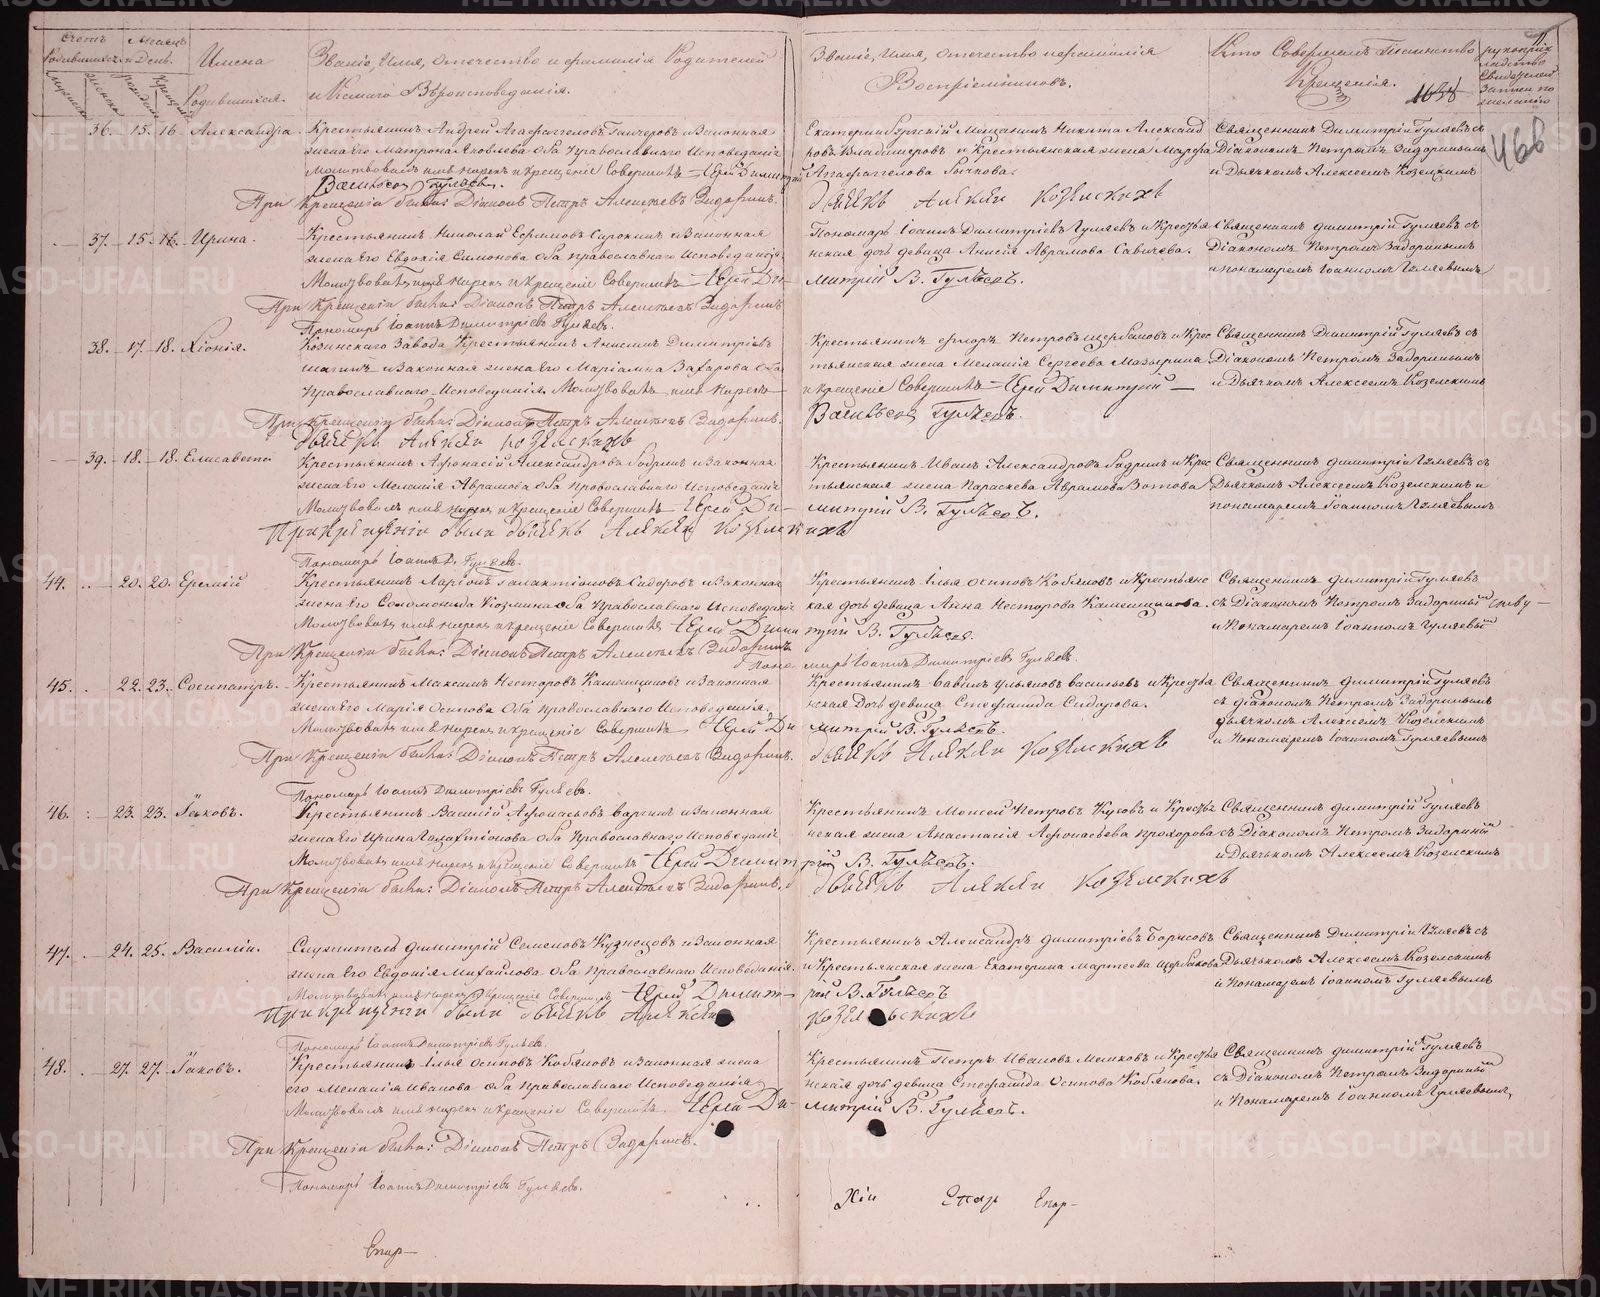 Счетъ Родившихся
Мѣсяцъ и День.
Имена Родившихся.
Званіе, Имя, отечество и фамилія Родителей
и Какого Вѣроисповеданія.
Званіе, Имя, отечество и фамилія
Воспріемниковъ.
Кто Совершалъ Таинство
Крещенія.
рукоприкладство
Свидетелей
Записи по
желанію
468
36. 15. 16. Александра.
Крестьянинъ Андрей Агафангеловъ и Законная
жена Его Матрона Яковлева Оба Православнаго Исповеданія
Молитвовалъ имя нарекъ и крещеніе Совершилъ Іерей Димитрій
Васильевъ Гуляевъ.
При Крещеніи были: Діаконъ Петръ Алексѣевъ Задоринъ.
Екатеринбургскій Мещанинъ Никита Александровъ Владимировъ и Крестьянская жена Марфа
Агафангелова Бычкова.
дьячекъ Алексѣй Козельскихъ
Священникъ Димитрій Гуляевъ съ
Діакономъ Петромъ Задоринымъ
и Дьячкомъ Алексеемъ Козельскимъ
37. 15. 16. Ирина.
Крестьянинъ Николай Ефимовъ Сорокинъ и Законная
жена Его Евдокія Симонова Оба православнаго Исповеданія
Молитвовалъ имя нарекъ и крещеніе Совершилъ Іерей Ди-
митрій В. Гуляевъ.
При Крещеніи были: Діаконъ Петръ Алексѣевъ Задоринъ
Пономарь Іоаннъ Димитріевъ Гуляевъ.
Пономарь Іоаннъ Димитріевъ Гуляевъ и Крестьянская дочь девица Анисія Аврамова Савичева.
Священникъ димитрій Гуляевъ съ
Діакономъ Петромъ Задоринымъ
и пономаремъ Іоанномъ Гуляевымъ
38. 17. 18. Хіонія.
завода Крестьянинъ Анисимъ Димитріевъ
и Законная жена Его Маріамна Захарова Оба
Православнаго Исповеданія Молитвовалъ имя нарекъ
и крещеніе Совершилъ Іерей Димитрій
Васильевъ Гуляевъ.
При Крещеніи были: Діаконъ Петръ Алексѣевъ Задоринъ.
дьячекъ Алексѣй Козельскихъ
Крестьянинъ Флоръ Петровъ Щербаковъ и Крестьянская жена Меланія Сергеева Мазырина
Священникъ Димитрій Гуляевъ съ
Діакономъ Петромъ Задоринымъ
и Дьячкомъ Алексеемъ Козельскимъ
39. 18. 18. Елисавета
Крестьянинъ Афонасій Александровъ и Законная
жена Его Меланія Аврамова Оба Православнаго Исповеданія
Молитвовалъ имя нарекъ и крещеніе Совершилъ Іерей Ди-
митрій В. Гуляевъ.
При крещеніи были дьячекъ Алексѣй Козельскихъ
Пономарь Іоаннъ Д. Гуляевъ.
Крестьянинъ Иванъ Александровъ и Крестьянская жена Параскева Аврамова Зотова
Священникъ димитрій Гуляевъ съ
Дьячкомъ Алексеемъ Козельскимъ и
пономаремъ Іоанномъ Гуляевымъ
44. 20. 20. Еремій
Крестьянинъ Ларіонъ Галактіоновъ Сидоровъ и Законная
жена Его Соломонида Козмина Оба Православнаго Исповеданія
Молитвовалъ имя нарекъ и крещеніе Совершилъ Іерей Димитрій В. Гуляевъ.
При Крещеніи были: Діаконъ Петръ Алексѣевъ Задоринъ
Пономарь Іоаннъ Димитріевъ Гуляевъ.
Крестьянинъ Илья Осиповъ Кобяковъ и Крестьянская дочь девица Анна Несторова Каменщикова.
Священникъ димитрій Гуляевъ
съ Діакономъ Петромъ Задоринымъ
и Пономаремъ Іоанномъ Гуляевымъ
45. 22. 23. Сосипатръ.
Крестьянинъ Максимъ Несторовъ Каменщиковъ и Законная
жена Его Марія Осипова Оба православнаго Исповеданія
Молитвовалъ имя нарекъ и крещеніе Совершилъ Іерей Ди
митрій В. Гуляевъ.
При Крещеніи были: Діаконъ Петръ Алексѣевъ Задоринъ.
дьячекъ Алексѣй Козельскихъ
Пономарь Іоаннъ Димитріевъ Гуляевъ.
Крестьянинъ Вавилъ Ульяновъ Васильевъ и Крестьянская Дочь девица Стефанида Сидорова.
Священникъ димитрій Гуляевъ
съ діакономъ Петромъ Задоринымъ
дьячкомъ Алексеемъ Козельскимъ
и Пономаремъ Іоанномъ Гуляевымъ
46. 23. 23. Іаковъ.
Крестьянинъ Василій Афонасьевъ и Законная
жена Его Ирина Галактіонова Оба Православнаго Исповеданія
Молитвовалъ имя нарекъ и крещеніе Совершилъ Іерей Димитрій В. Гуляевъ.
При Крещеніи были: Діаконъ Петръ Алексѣевъ Задоринъ.
дьячекъ Алексѣй Козельскихъ
Крестьянинъ Моисей Петровъ Кусовъ и Крестьянская жена Анастасія Афонасьева Прохорова
Священникъ димитрій Гуляевъ
съ Діакономъ Петромъ Задоринымъ
и Дьячкомъ Алексеемъ Козельскимъ
47. 24. 25. Василій.
Служитель димитрій Семеновъ Кузнецовъ и Законная
жена Его Евдокія Михайлова Оба православнаго Исповеданія.
Молитвовалъ имя нарекъ и крещеніе Совершилъ Іерей Димит-
рій В. Гуляевъ
При крещеніи были дьячекъ Алексѣй
Козельскихъ
Пономарь Іоаннъ Димитріевъ Гуляевъ.
Крестьянинъ Александръ димитріевъ Борисовъ
и Крестьянская жена Екатерина Мартеева Щербакова
Священникъ Димитрій Гуляевъ съ
Дьячкомъ Алексеемъ Козельскимъ
и Пономаремъ Іоанномъ Гуляевымъ
48. 27. 27. Іаковъ.
Крестьянинъ Илья Осиповъ Кобяковъ и Законная жена
его Меланія Иванова оба Православнаго Исповеданія
Молитвовалъ имя нарекъ и крещеніе Совершилъ. Іерей Ди-
митрій В. Гуляевъ.
При Крещеніи были: Діаконъ Петръ Задоринъ.
Пономарь Іоаннъ Димитріевъ Гуляевъ.
Крестьянинъ Петръ Ивановъ и Крестьянская дочь девица Стефанида Осипова Кобякова.
Священникъ димитрій Гуляевъ
съ Діакономъ Петромъ Задоринымъ
и Пономаремъ Іоанномъ Гуляевымъ,
METRIKI.GASO-URAL.RU